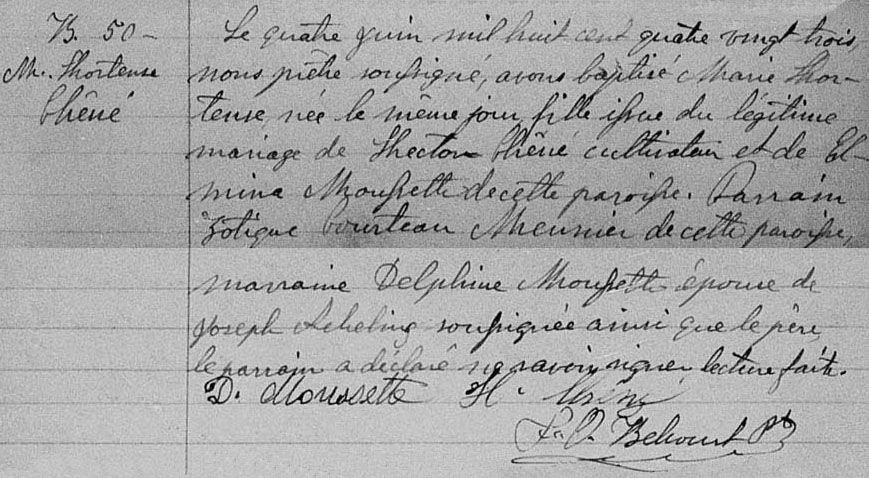 B. 50 -
M. Hortense
Chêné
Le quatre juin mil huit cent quatre vingt trois,
nous prêtre soussigné, avons baptisé Marie Hor-
tense, née le même jour, fille issue du légitime
mariage de Hector Chêné cultivateur et de El-
mina Moussette de cette paroisse. Parrain
Zotique Courteau Meunier de cette paroisse,
marraine Delphine Moussette épouse de
Joseph soussignée ainsi que le père,
le parrain a déclaré ne savoir signer lecture faite.
D. Moussette H. Chêné
Belcourt Ptr